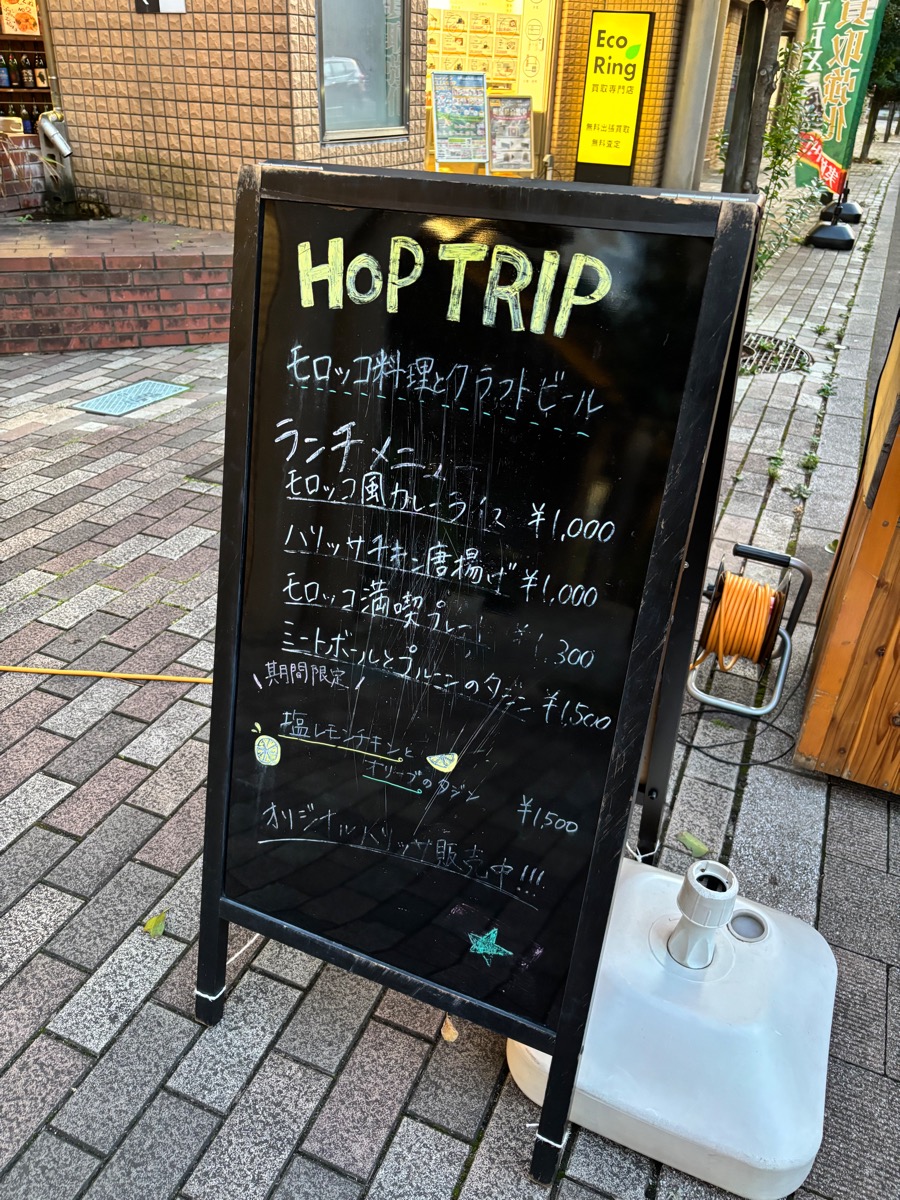 Eco
Ring
買取専門店
無料出張買取
無料査定
買取強化
HOP TRIP
モロッコ料理とクラフトビール
ランチメニュー
モロッコ風カレーライス ¥1,000
ハリッサチキン唐揚げ ¥1,000
モロッコ満喫プレート ¥1,300
ミートボールとプルーンのタジン ¥1,500
\期間限定/
塩レモンチキンと
オリーブのタジン
¥1,500
オリジナルハリッサ販売中!!!